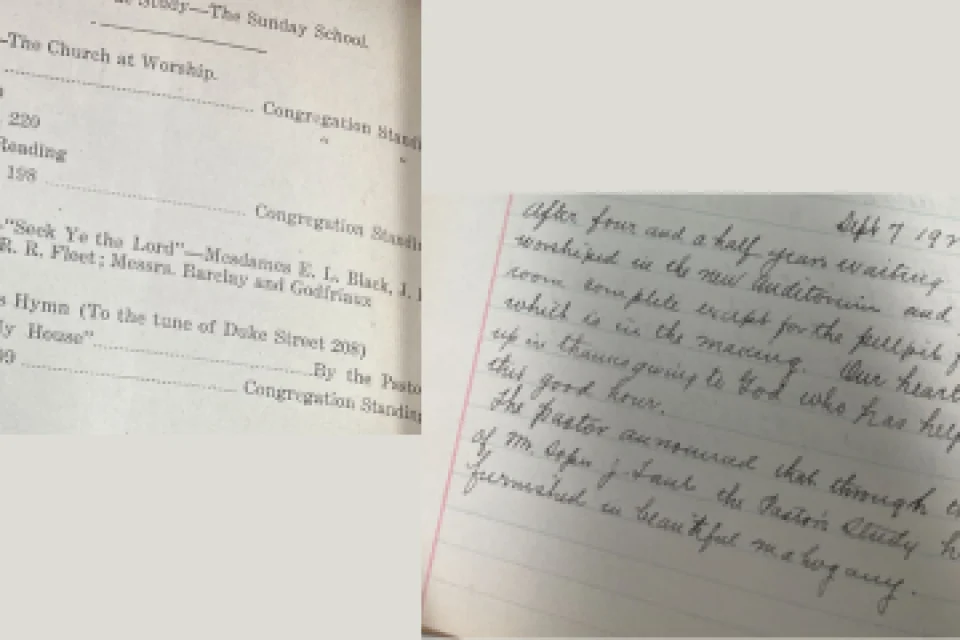 Study—The Sunday School.
—The Church at Worship.
Congregation Standi
" "
220
Reading
198 Congregation Standin
"Seek Ye the Lord"—Mesdames E. L. Black, J.
R. R. Fleet; Messrs. Barclay and Godfriaux
s Hymn (To the tune of Duke Street 208)
House" By the Pasto
Congregation Standin
Sept 7 19
After four and a half years waiting
worshiped in the new auditorium and
room complete except for the pulpit
which is in the making. Our heart
up in thanksgiving to God who has help
this good hour.
The pastor announced that through
of Mr. J. the Pastor's Study
furnished in beautiful mahogany.